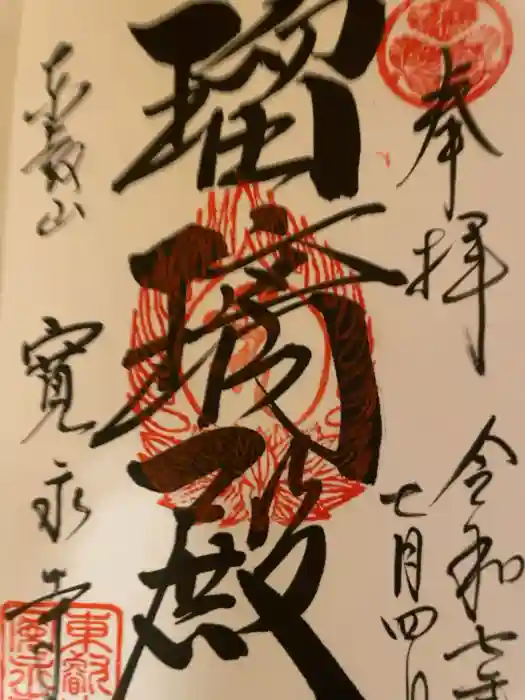 奉拝
令和七年
七月四日
瑠璃殿
東叡山 寛永寺
東叡